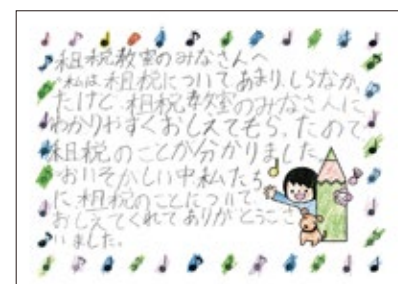 租税教室のみなさんへ
私は租税についてあまりしらなか
たけど、租税教室のみなさんに
わかりやすくおしえてもらったので
租税のことが分かりました。
おいそがしい中、私たち
に租税のことについて
おしえてくれてありがとうござ
いました。